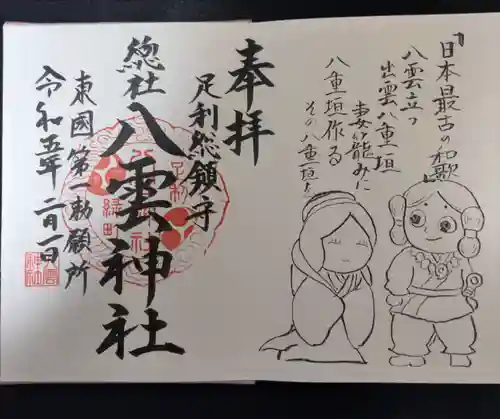 「日本最古の和歌」
八雲立つ
出雲八重垣
妻籠みに
八重垣作る
その八重垣を
奉拝
足利総鎮守
總社
八雲神社
東國第一勅願所
令和五年二月一日